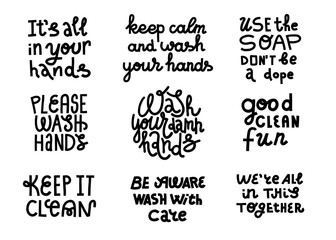 It's all
in your
hands
keep calm
and wash
your hands
USE the
SOAP
DON't be
a dope
PLEASE
WASH
HANDS
Wash
your damn
hands
good
CLEAN
fun
KEEP IT
CLEAN
BE AWARE
WASH WitH
Care
We're All
in THIS
TOGETHER